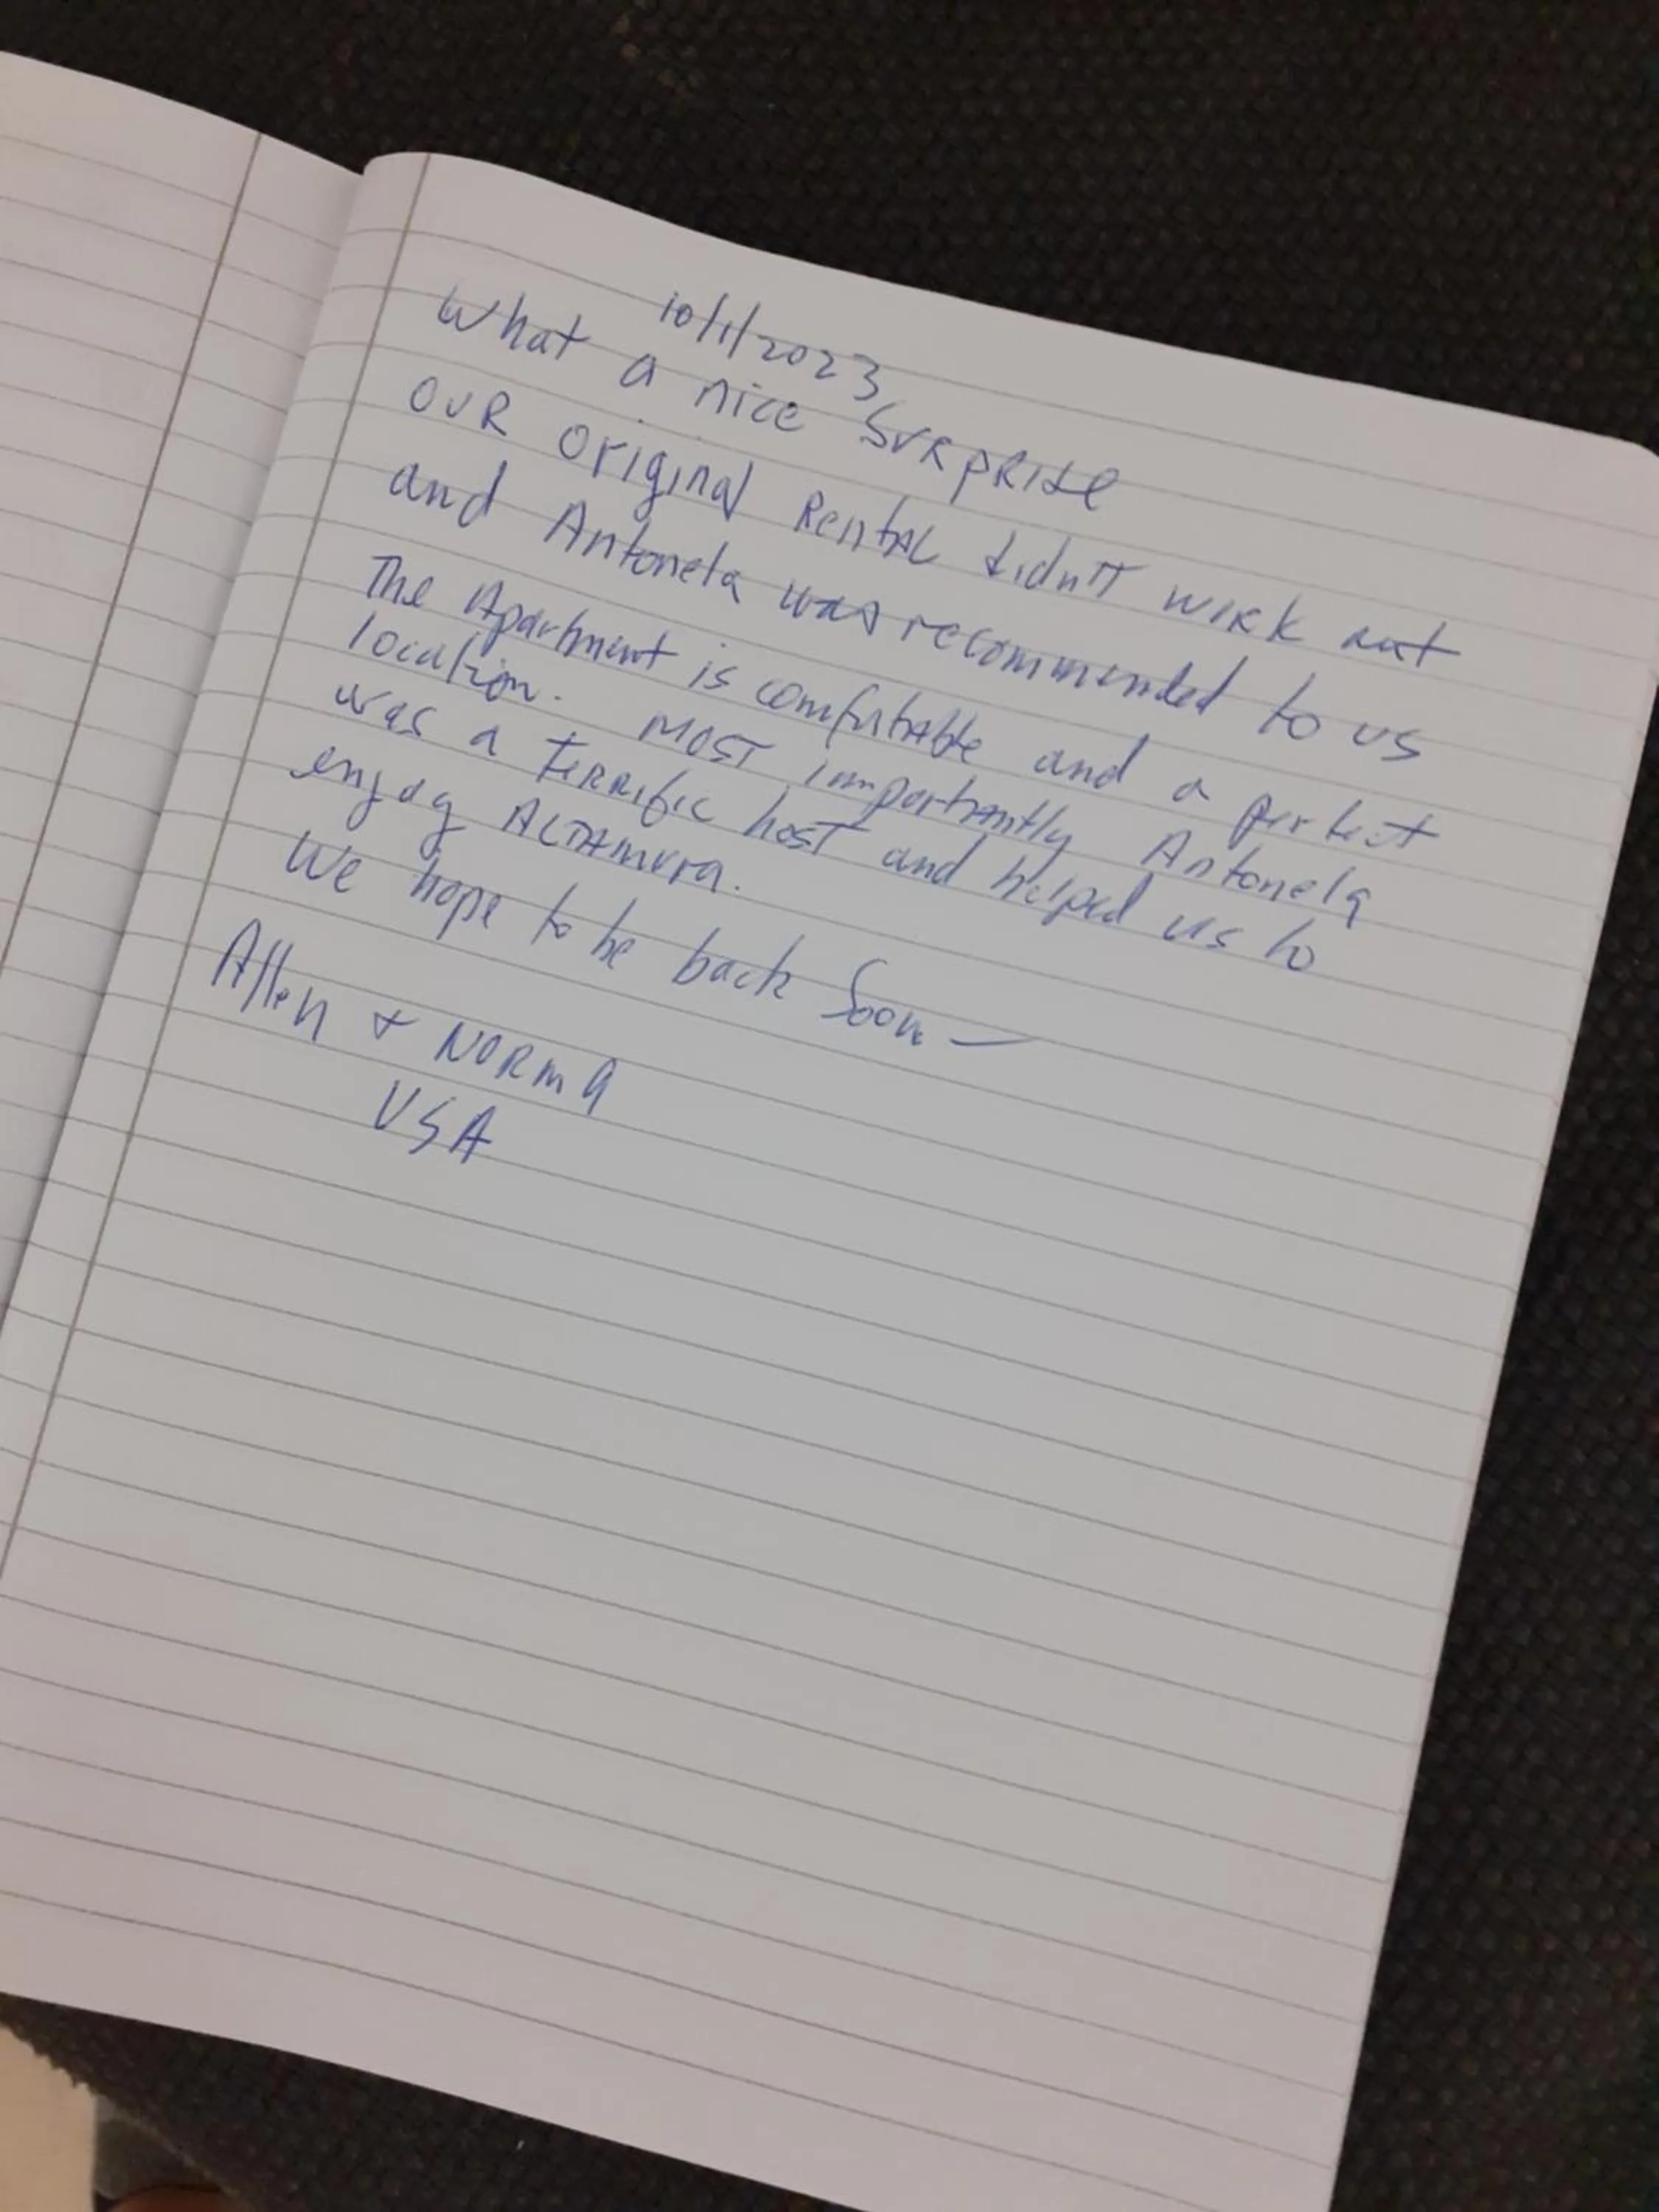 10/1/2023
What a nice SURPRISE
OUR original Rental didn't work out
and Antonela was recommended to us
The Apartment is comfortable and a perfect
location. MOST importantly Antonela
was a terrific host and helped us to
enjoy ALTAMURA.
We hope to be back Soon —
Allen & NORMA
USA